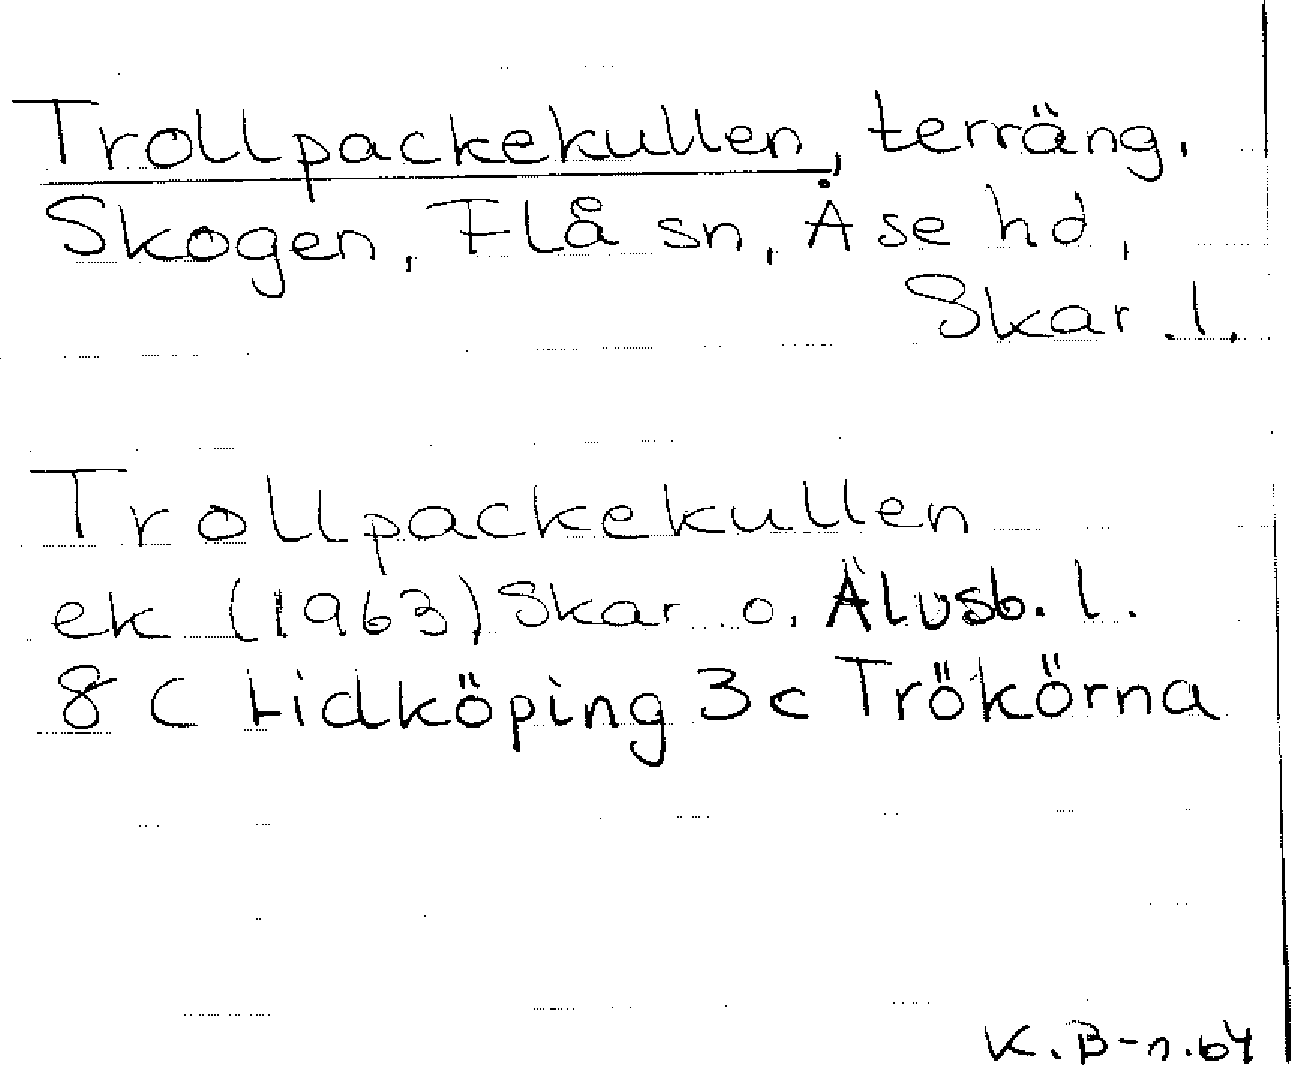 Trollpackekullen, terräng.
Skogen, Flå sn, Åse hd,
Skar. l.
Trollpackekullen
ek (1963) Skar. o. Älvsb. l.
8 C Lidköping 3c Trökörna
K. B-n. 64